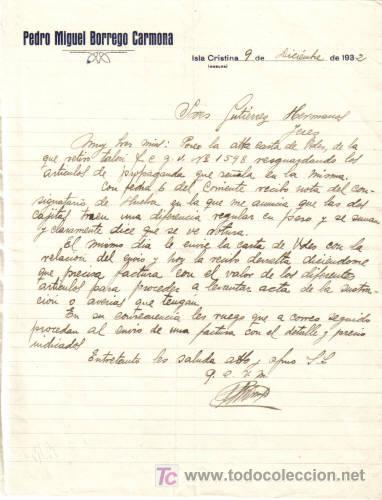 Pedro Miguel Borrego Carmona
Isla Cristina 9 de Diciembre de 1932
(HUELVA)
Sres Gutiérrez Hermanos
Jerez
Muy Sres mios: Poseo la atta carta de Vdes, de la
que retiro talón f. c. g. v. nº 1598 resguardando los
artículos de propaganda que señala en la misma.
Con fecha 6 del corriente recibo nota del con-
signatario de Huelva en la que me anuncia que las dos
cajitas traen una diferencia regular en peso y se
y claramente dice que se ve abierta.
El mismo dia le envie la carta de Vdes con la
relación del envio y hoy la recibo devuelta diciendome
que precisa factura con el valor de los diferentes
artículos para proceder a levantar acta de la sustrac-
ción o averias que tengan.
En su consecuencia les ruego que a correo seguido
procedan al envio de una factura con el detalle y precio
indicados
Entretanto les saluda atto y afmo S. S.
q. e. s. m.
TC www.todocoleccion.net